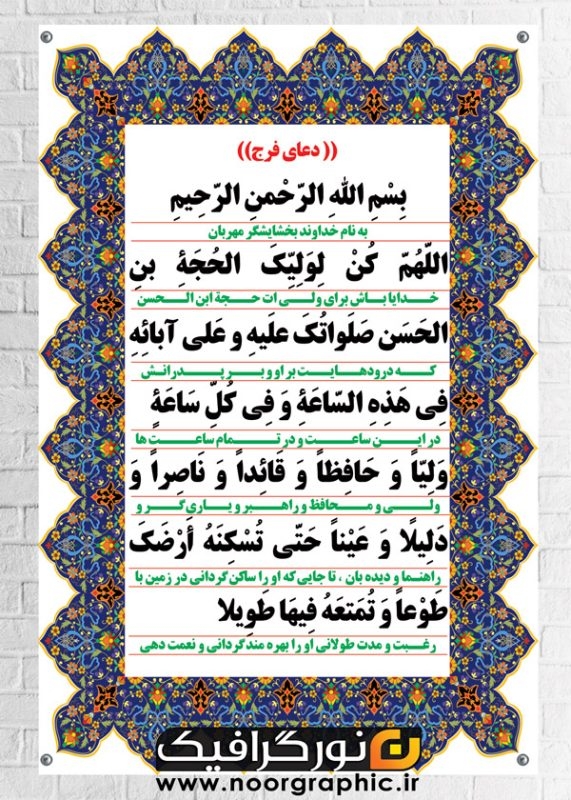 (( دعای فرج))
بِسْمِ اللهِ الرّحْمنِ الرّحِیمِ
به نام خداوند بخشایشگر مهربان
اللّهُمّ کُنْ لِوَلِیِّکَ الحُجَةِ بنِ
خدایا باش برای ولی ات حجة ابن الحسن
الحَسَن صَلَواتُکَ علَیهِ و عَلی آبائِهِ
که درودهایت بر او و بر پدرانش
فِی هَذِهِ السّاعَةِ وَ فِی کُلِّ سَاعَةِ
در این ساعت و در تمام ساعت ها
وَلِیّاً وَ حَافِظاً وَ قَائِداً وَ نَاصِراً وَ
ولی و محافظ و راهبر و یاری گر و
دَلِیلًا وَ عَیْناً حَتّی تُسْکِنَهُ أرْضَکَ
راهنما و دیده بان ، تا جایی که او را ساکن گردانی در زمین با
طَوْعاً وَ تُمَتعَهُ فِیهَا طَوِیلا
رغبت و مدت طولانی او را بهره مند گردانی و نعمت دهی
نورگرافیک
www.noorgraphic.ir